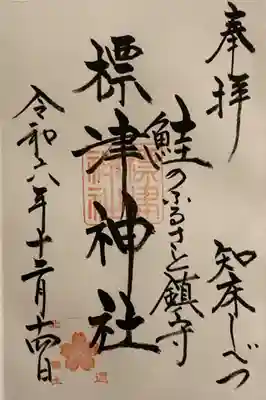 奉拝 知床しべつ
鮭のふるさと鎮守
標津神社
令和六年十二月十四日